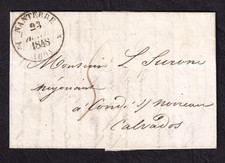 NANTERRE
23
1848
Monsieur L Suronne
négociant
à Condé s/ noireau
Calvados